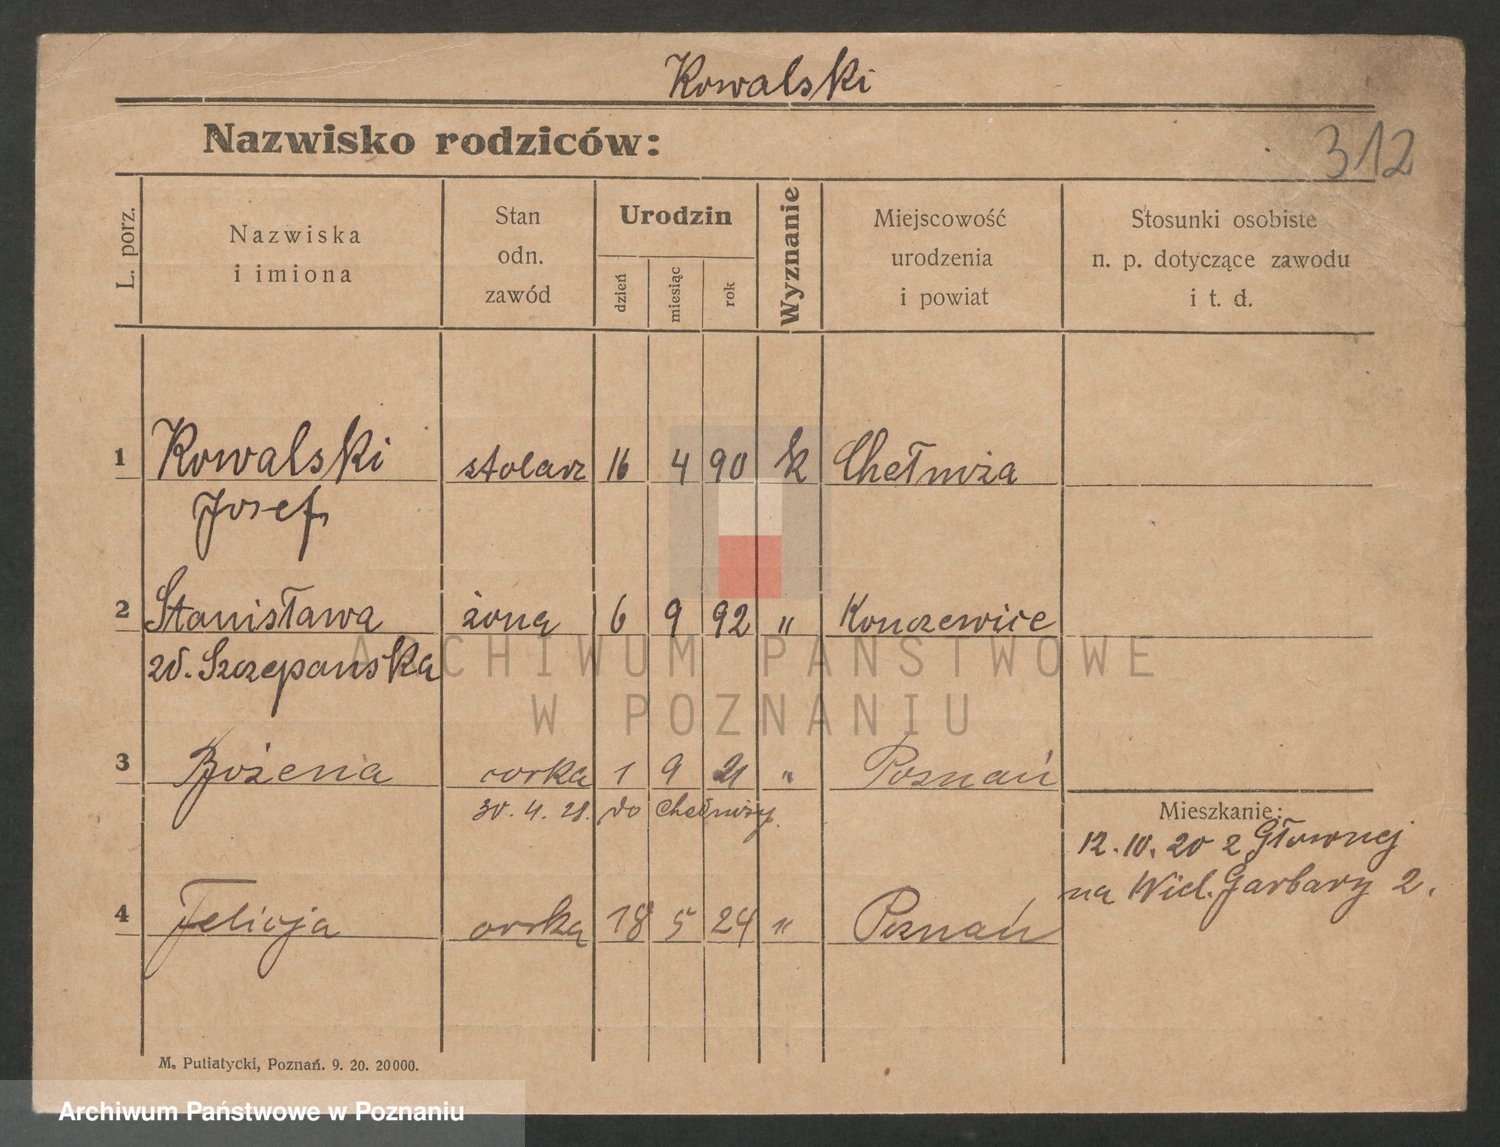 Kowalski
Nazwisko rodziców:
312
L. porz.
Nazwiska
i imiona
Stan
odn.
zawód
Urodzin
dzień
miesiąc
rok
Wyznanie
Miejscowość
urodzenia
i powiat
Stosunki osobiste
n. p. dotyczące zawodu
i t. d.
1 Kowalski stolarz 16 4 90 k Chełmża
Josef
2 Stanisława żona 6 9 92 " Konczewice
zd. Szczepańska
ARCHIWUM PAŃSTWOWE
W POZNANIU
3 Bożena córka 1 9 21 " Poznań
30. 4. 28. do Chełmży.
Mieszkanie:
12. 10. 20 z Głównej
na Wiel. Garbary 2.
4 Felicja córka 18 5 24 " Poznań
M. Putiatycki, Poznań. 9. 20. 20000.
Archiwum Państwowe w Poznaniu